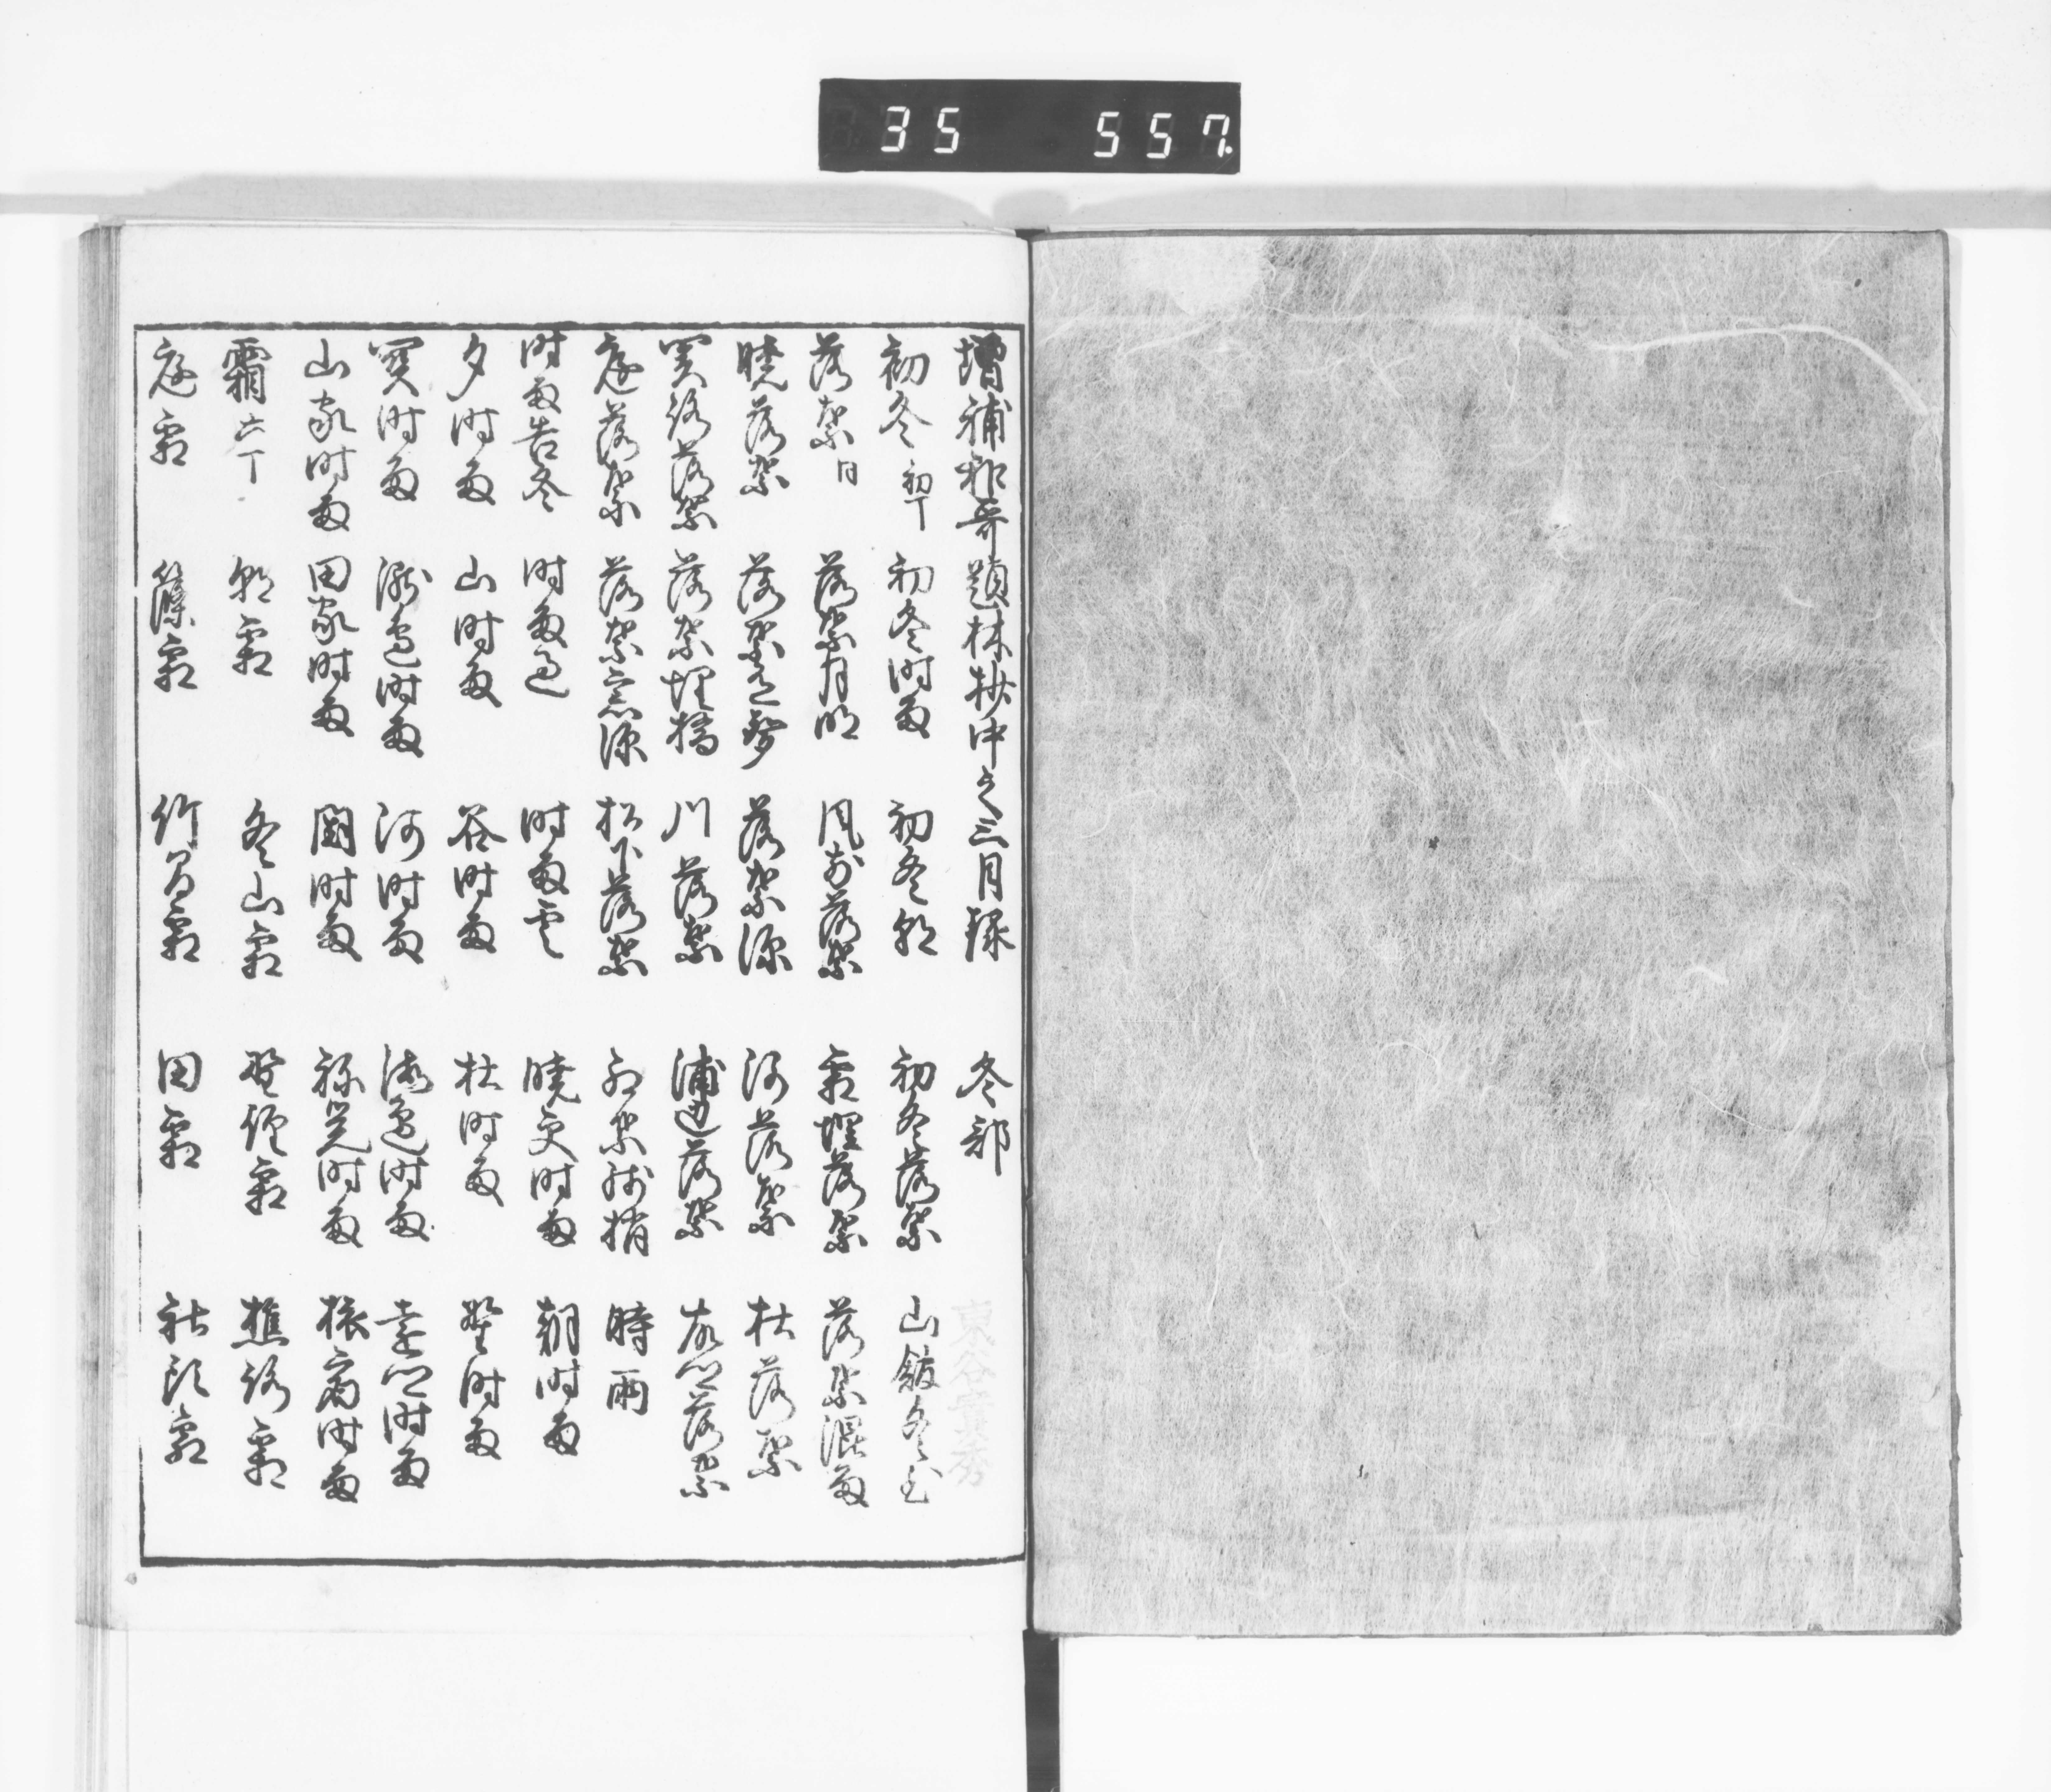 35 557.
増補和哥題林抄中之三目録 冬部
初冬 初丁 初冬時雨 初冬朝 初冬落葉 山館冬至
落葉 同 落葉月明 風前落葉 霜埋落葉 落葉混雨
暁落葉 落葉有声 落葉深 河落葉 杜落葉
関路落葉 落葉埋橋 川落葉 浦辺落葉 故郷落葉
庭落葉 落葉窓深 松下落葉 紅葉残梢 時雨
時雨告冬 時雨過 時雨雲 暁更時雨 朝時雨
夕時雨 山時雨 谷時雨 杜時雨 野時雨
関時雨 滝辺時雨 河時雨 海辺時雨 遠近時雨
山家時雨 田家時雨 閑時雨 寝覚時雨 旅宿時雨
霜 六丁 朝霜 冬山霜 野径霜 樵路霜
庭霜 篠霜 竹間霜 田霜 社頭霜